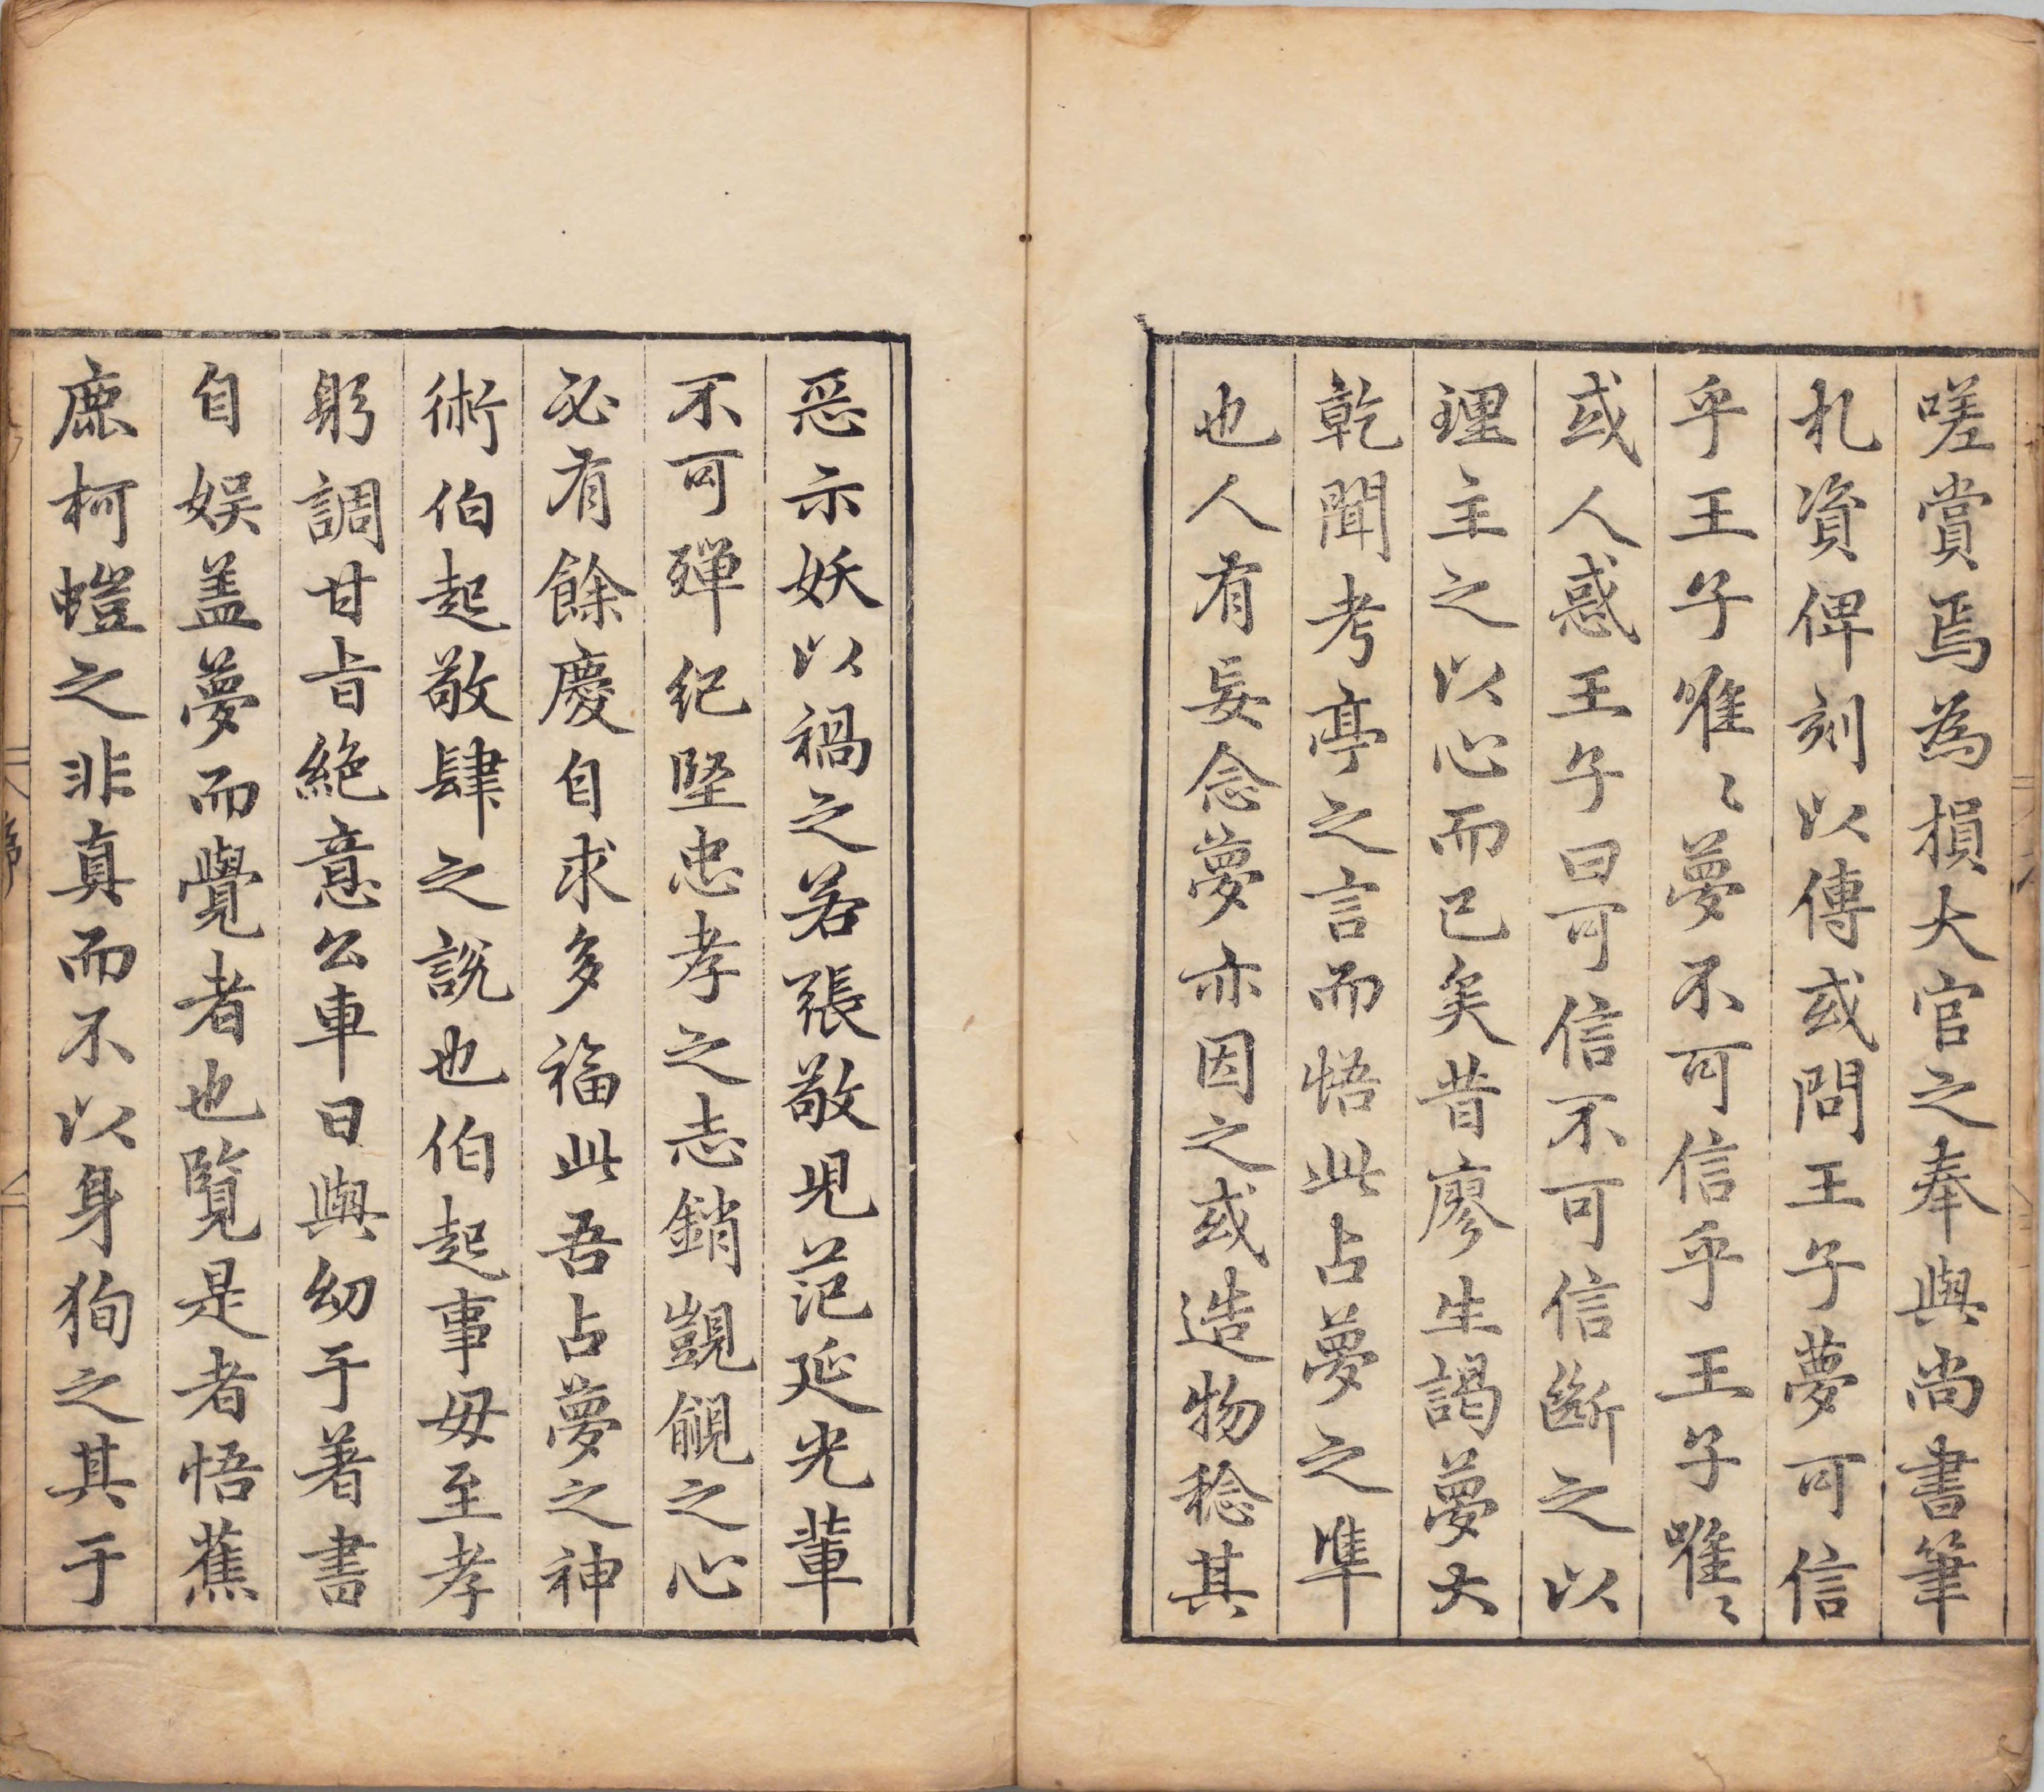 嗟賞焉為損大官之奉與尚書筆
札資俾刻以傳或問王子夢可信
乎王子唯〻夢不可信乎王子唯〻
或人惑王子曰可信不可信斷之以
理主之以心而已矣昔廖生謁夢大
乾聞考亭之言而悟此占夢之準
也人有妄念夢亦因之或造物稔其
惡示妖以禍之若張敬児范延光輩
不可殫紀堅忠孝之志銷覬覦之心
必有餘慶自求多福此吾占夢之神
術伯起敬肆之說也伯起事毋至孝
躬調甘旨絶意公車日與幼于著書
自娱盖夢而覺者也覧是者悟蕉
鹿柯螘之非真而不以身狥之其于